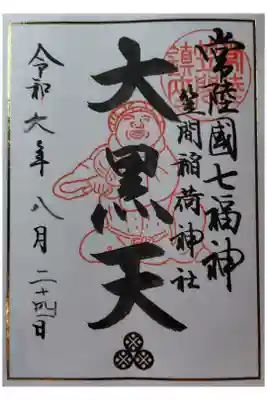 常陸國七福神
笠間稲荷神社
大黒天
令和六年八月二十四日